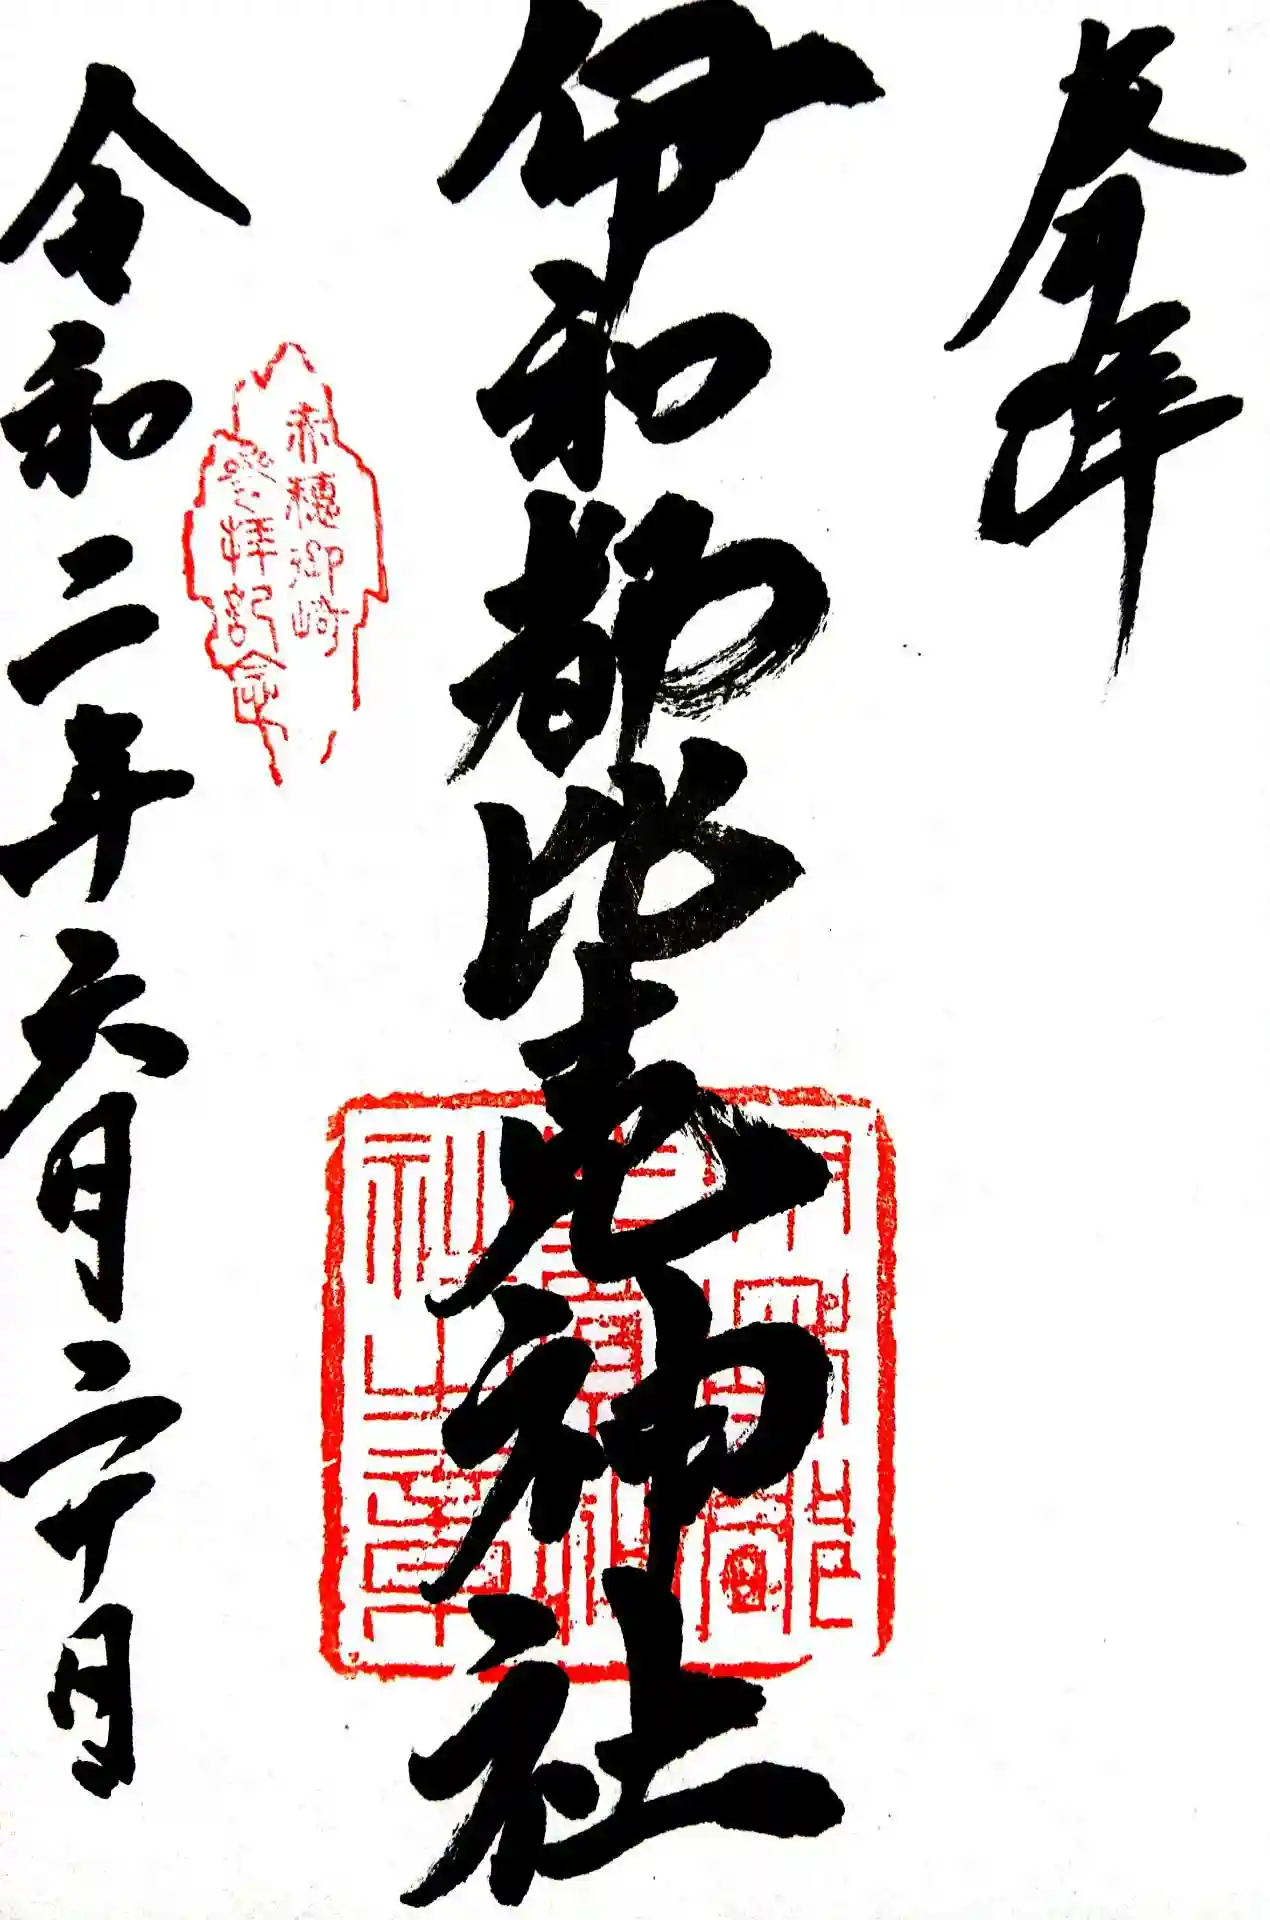 奉拝
伊和都比売神社
赤穂御崎
參拝記念
令和二年六月二十日